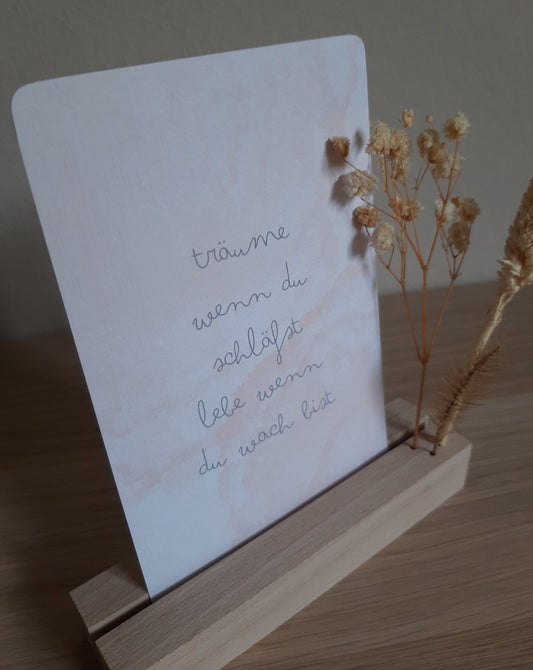 träume
wenn du
schläfst
lebe wenn
du wach bist